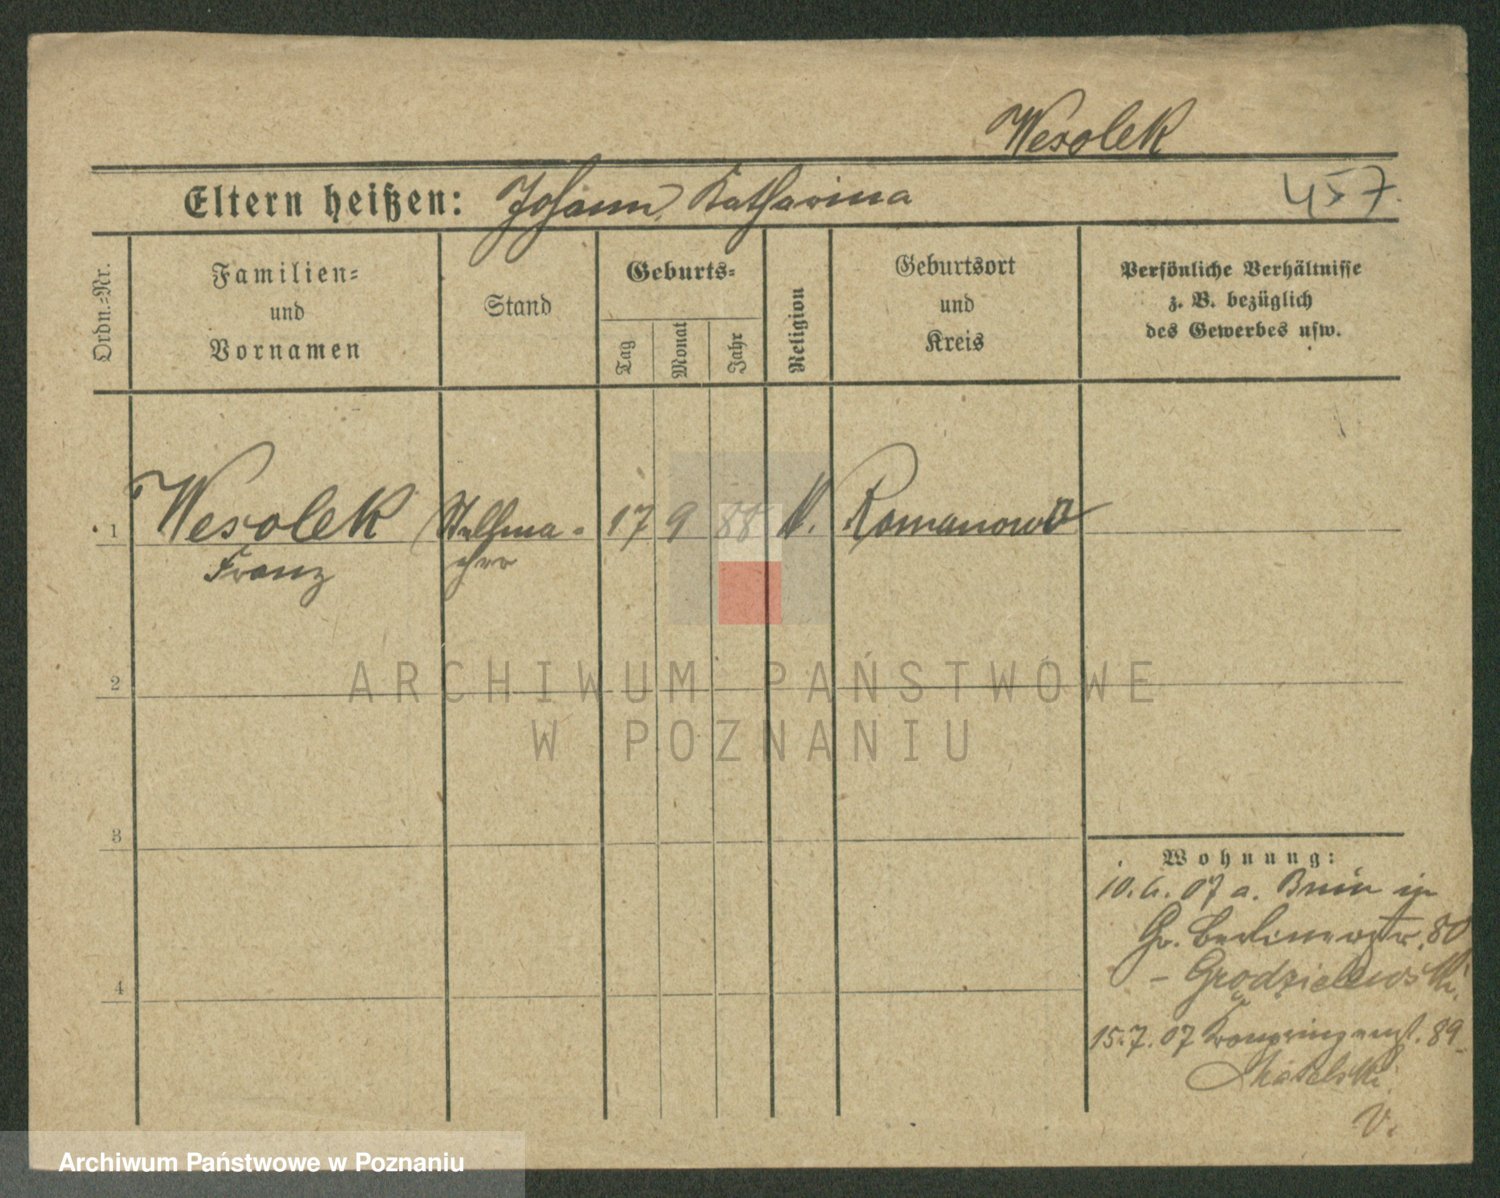 Wesolek
Eltern heißen: Johann, Katharina
457.
Ordn.-Nr.
Familien-
und
Vornamen
Stand
Geburts-
Tag
Monat
Jahr
Religion
Geburtsort
und
Kreis
Persönliche Verhältnisse
z. B. bezüglich
des Gewerbes usw.
1 Wesolek Stellma- 17 9 88 k. Romanowo
Franz cher
2
3
4
Wohnung:
10.6.07 a. Bnin in
Gr. Berlinerstr. 80
15.7.07 Kronprinzenst. 89
V.
ARCHIWUM PAŃSTWOWE
W POZNANIU
Archiwum Państwowe w Poznaniu